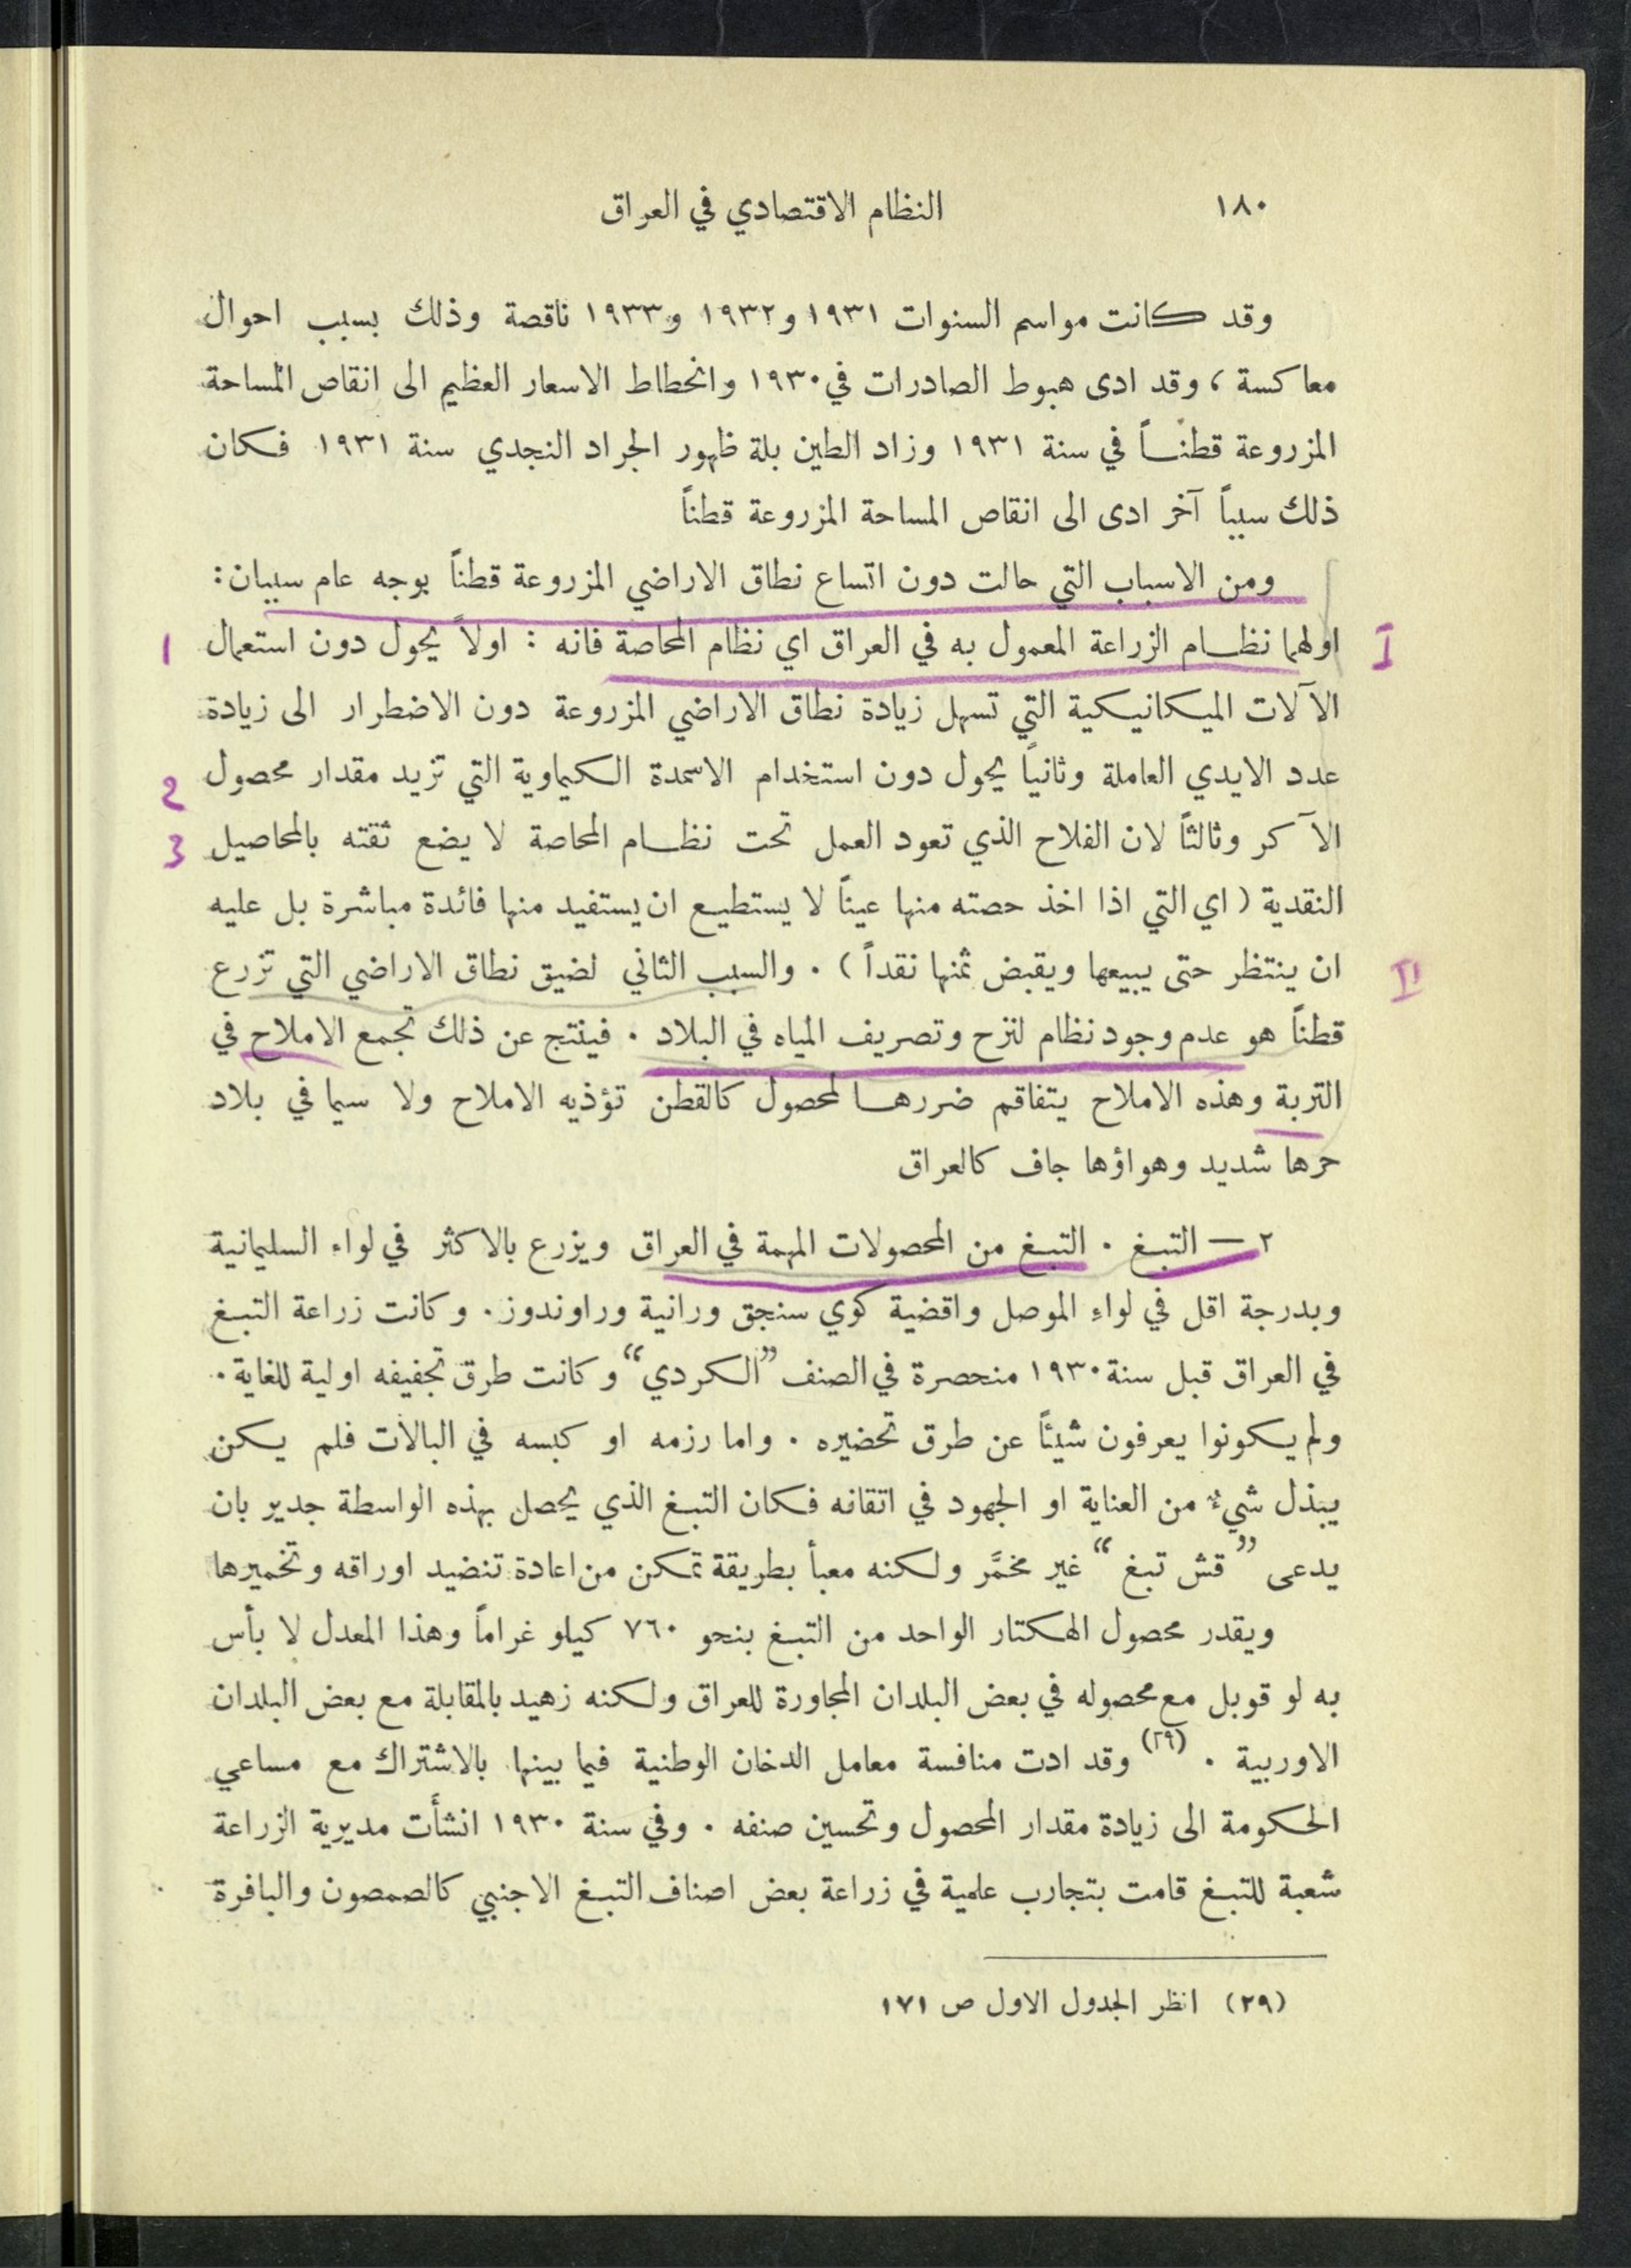 ١٨٠
النظام الاقتصادي في العراق
وقد كانت مواسم السنوات ١٩٣١ و١٩٣٢ و١٩٣٣ ناقصة وذلك بسبب احوال
معاكسة ، وقد ادى هبوط الصادرات في ١٩٣٠ وانحطاط الاسعار العظيم الى انقاص المساحة
المزروعة قطناً في سنة ١٩٣١ وزاد الطين بلة ظهور الجراد النجدي سنة ١٩٣١ فكان
ذلك سبباً آخر ادى الى انقاص المساحة المزروعة قطناً
ومن الاسباب التي حالت دون اتساع نطاق الاراضي المزروعة قطناً بوجه عام سببان :
I اولهما نظام الزراعة المعمول به في العراق اي نظام المحاصة فانه : اولاً يحول دون استعمال 1
الآلات الميكانيكية التي تسهل زيادة نطاق الاراضي المزروعة دون الاضطرار الى زيادة
عدد الايدي العاملة وثانياً يحول دون استخدام الاسمدة الكيماوية التي تزيد مقدار محصول 2
الآكر وثالثاً لان الفلاح الذي تعود العمل تحت نظام المحاصة لا يضع ثقته بالمحاصيل 3
النقدية ( اي التي اذا اخذ حصته منها عيناً لا يستطيع ان يستفيد منها فائدة مباشرة بل عليه
II ان ينتظر حتى يبيعها ويقبض ثمنها نقداً ) . والسبب الثاني لضيق نطاق الاراضي التي تزرع
قطناً هو عدم وجود نظام لنزح وتصريف المياه في البلاد . فينتج عن ذلك تجمع الاملاح في
التربة وهذه الاملاح يتفاقم ضررها لمحصول كالقطن تؤذيه الاملاح ولا سيما في بلاد
حرها شديد وهواؤها جاف كالعراق
٢ — التبغ . التبغ من المحصولات المهمة في العراق ويزرع بالاكثر في لواء السليمانية
وبدرجة اقل في لواء الموصل واقضية كوي سنجق ورانية وراوندوز . وكانت زراعة التبغ
في العراق قبل سنة ١٩٣٠ منحصرة في الصنف ”الكردي“ وكانت طرق تجفيفه اولية للغاية .
ولم يكونوا يعرفون شيئاً عن طرق تحضيره . واما رزمه او كبسه في البالات فلم يكن
يبذل شيء من العناية او الجهود في اتقانه فكان التبغ الذي يحصل بهذه الواسطة جدير بان
يدعى ”قش تبغ“ غير مخمَّر ولكنه معبأ بطريقة تمكن من اعادة تنضيد اوراقه وتخميرها
ويقدر محصول الهكتار الواحد من التبغ بنحو ٧٦٠ كيلو غراماً وهذا المعدل لا بأس
به لو قوبل مع محصوله في بعض البلدان المجاورة للعراق ولكنه زهيد بالمقابلة مع بعض البلدان
الاوربية . (٢٩) وقد ادت منافسة معامل الدخان الوطنية فيما بينها بالاشتراك مع مساعي
الحكومة الى زيادة مقدار المحصول وتحسين صنفه . وفي سنة ١٩٣٠ انشأت مديرية الزراعة
شعبة للتبغ قامت بتجارب علمية في زراعة بعض اصناف التبغ الاجنبي كالصمصون والبافرة
(٢٩) انظر الجدول الاول ص ١٧١